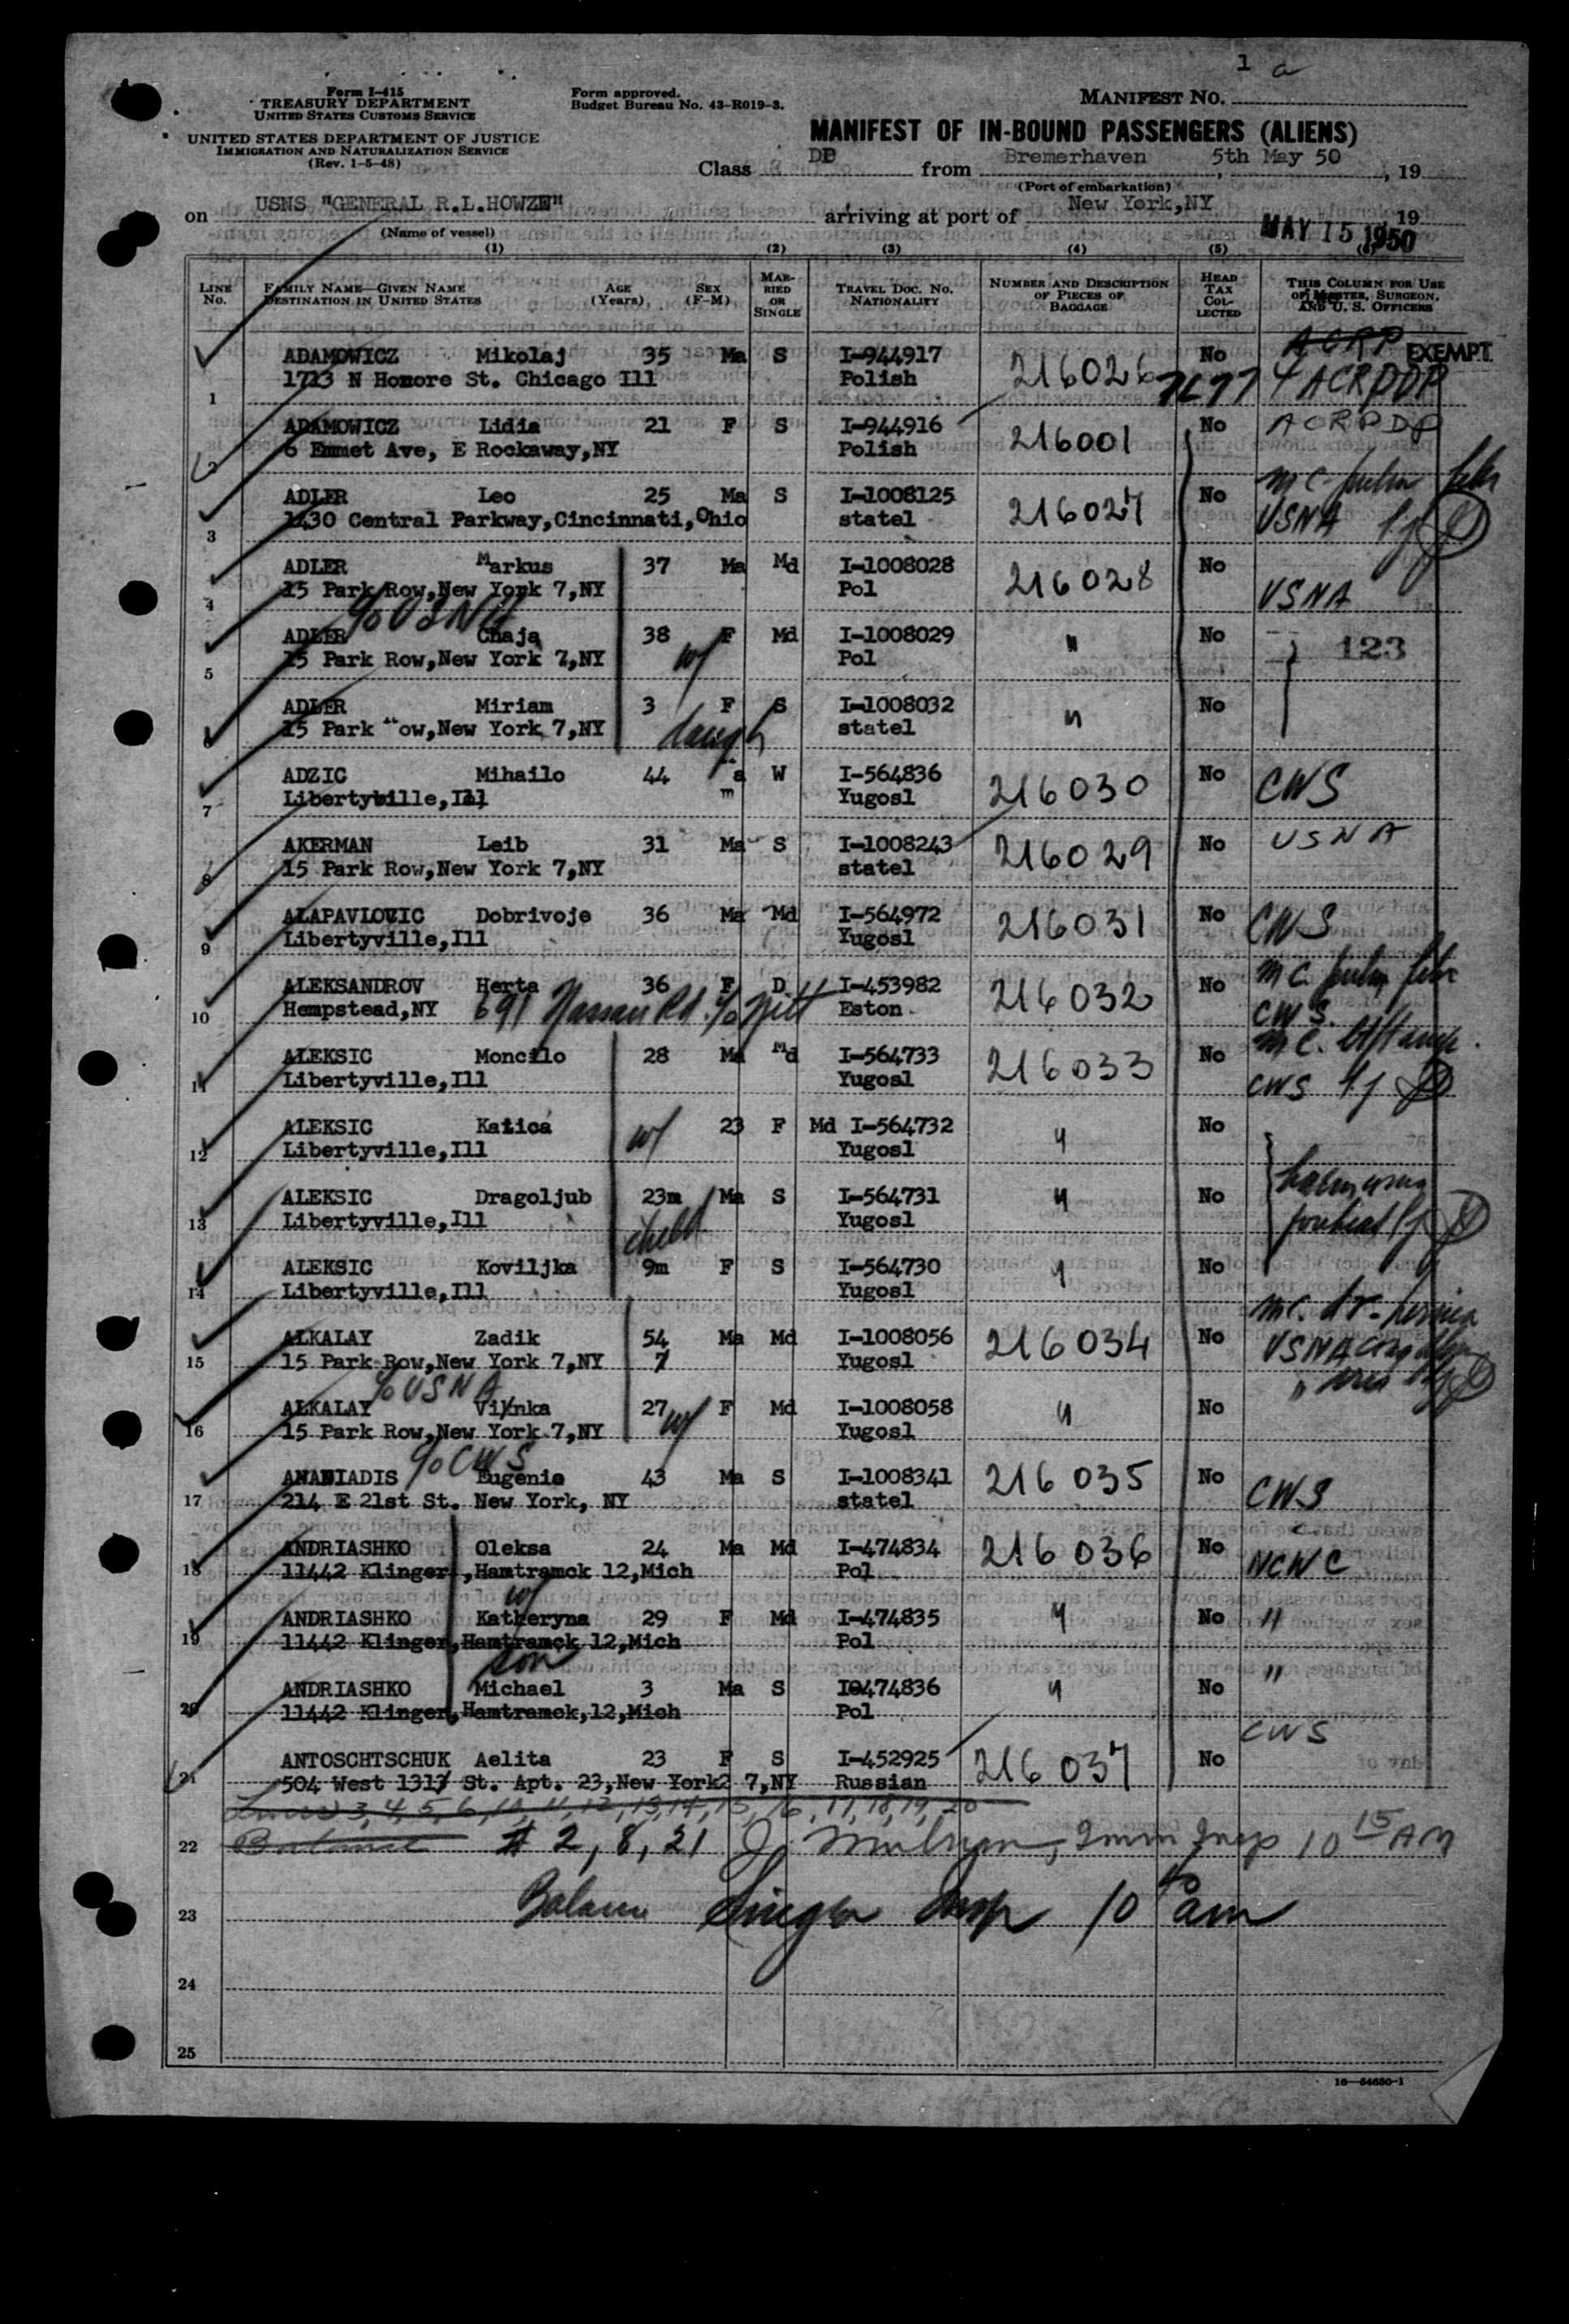 1 a
Form I-415
TREASURY DEPARTMENT
UNITED STATES CUSTOMS SERVICE
UNITED STATES DEPARTMENT OF JUSTICE
IMMIGRATION AND NATURALIZATION SERVICE
(Rev. 1-5-48)
Form approved.
Budget Bureau No. 43-R019-3.
MANIFEST NO.
MANIFEST OF IN-BOUND PASSENGERS (ALIENS)
Class DP from Bremerhaven, 5th May 50, 19
(Port of embarkation)
on USNS "GENERAL R.L.HOWZE" arriving at port of New York,NY 19
(Name of vessel)
MAY 15 1950
(1) (2) (3) (4) (5) (6)
LINE No. FAMILY NAME—GIVEN NAME DESTINATION IN UNITED STATES AGE (Years) SEX (F-M) MARRIED OR SINGLE TRAVEL DOC. NO. NATIONALITY NUMBER AND DESCRIPTION OF PIECES OF BAGGAGE HEAD TAX COLLECTED THIS COLUMN FOR USE OF MASTER, SURGEON, AND U. S. OFFICERS
ADAMOWICZ Mikolaj 35 Ma S I-944917 216026 No ACRP EXEMPT
1 1713 N Homore St. Chicago Ill Polish 7677 4 ACRPDP
ADAMOWICZ Lidia 21 F S I-944916 216001 No ACRPDP
2 6 Emmet Ave, E Rockaway,NY Polish
ADLER Leo 25 Ma S I-1008125 216027 No
3 1430 Central Parkway,Cincinnati,Ohio statel USNA
ADLER Markus 37 Ma Md I-1008028 216028 No
4 15 Park Row,New York 7,NY Pol USNA
c/o USNA
ADLER Chaja 38 F Md I-1008029 " No 123
5 15 Park Row,New York 7,NY w/ Pol
ADLER Miriam 3 F S I-1008032 " No
6 15 Park "ow,New York 7,NY daugh statel
ADZIC Mihailo 44 "a W I-564836 216030 No CWS
7 Libertyville,Ill m Yugosl
AKERMAN Leib 31 Ma S I-1008243 216029 No USNA
8 15 Park Row,New York 7,NY statel
ALAPAVLOVIC Dobrivoje 36 Ma Md I-564972 216031 No CWS
9 Libertyville,Ill Yugosl
ALEKSANDROV Herta 36 F D I-453982 216032 No
10 Hempstead,NY 691 Nassau Rd. c/o Eston CWS
ALEKSIC Moncilo 28 Ma Md I-564733 216033 No
11 Libertyville,Ill Yugosl CWS
ALEKSIC Katica w/ 23 F Md I-564732 " No
12 Libertyville,Ill Yugosl
ALEKSIC Dragoljub 23m Ma S I-564731 " No
13 Libertyville,Ill child Yugosl forehead
ALEKSIC Koviljka 9m F S I-564730 " No
14 Libertyville,Ill Yugosl
ALKALAY Zadik 54 Ma Md I-1008056 216034 No
15 15 Park Row,New York 7,NY 7 Yugosl USNA
c/o USNA
ALKALAY Vilnka 27 w/ F Md I-1008058 " No
16 15 Park Row,New York 7,NY Yugosl
c/o CWS
ANANIADIS Eugenie 43 Ma S I-1008341 216035 No CWS
17 214 E 21st St. New York, NY statel
ANDRIASHKO Oleksa 24 Ma Md I-474834 216036 No NCWC
18 11442 Klinger,Hamtramck 12,Mich Pol
w/
ANDRIASHKO Katheryna 29 F Md I-474835 " No "
19 11442 Klinger,Hamtramck 12,Mich Pol
son
ANDRIASHKO Michael 3 Ma S I0474836 " No "
20 11442 Klinger,Hamtramck,12,Mich Pol
ANTOSCHTSCHUK Aelita 23 F S I-452925 216037 No CWS
21 504 West 131 St. Apt. 23,New York 7,NY Russian
Lines 3,4,5,6,10,11,12,13,14,15,16,17,18,19,20
22 Balance # 2,8,21 J. Imm Insp 10 15 AM
23 Balance Insp 10 40 am
24
25
16—54630-1